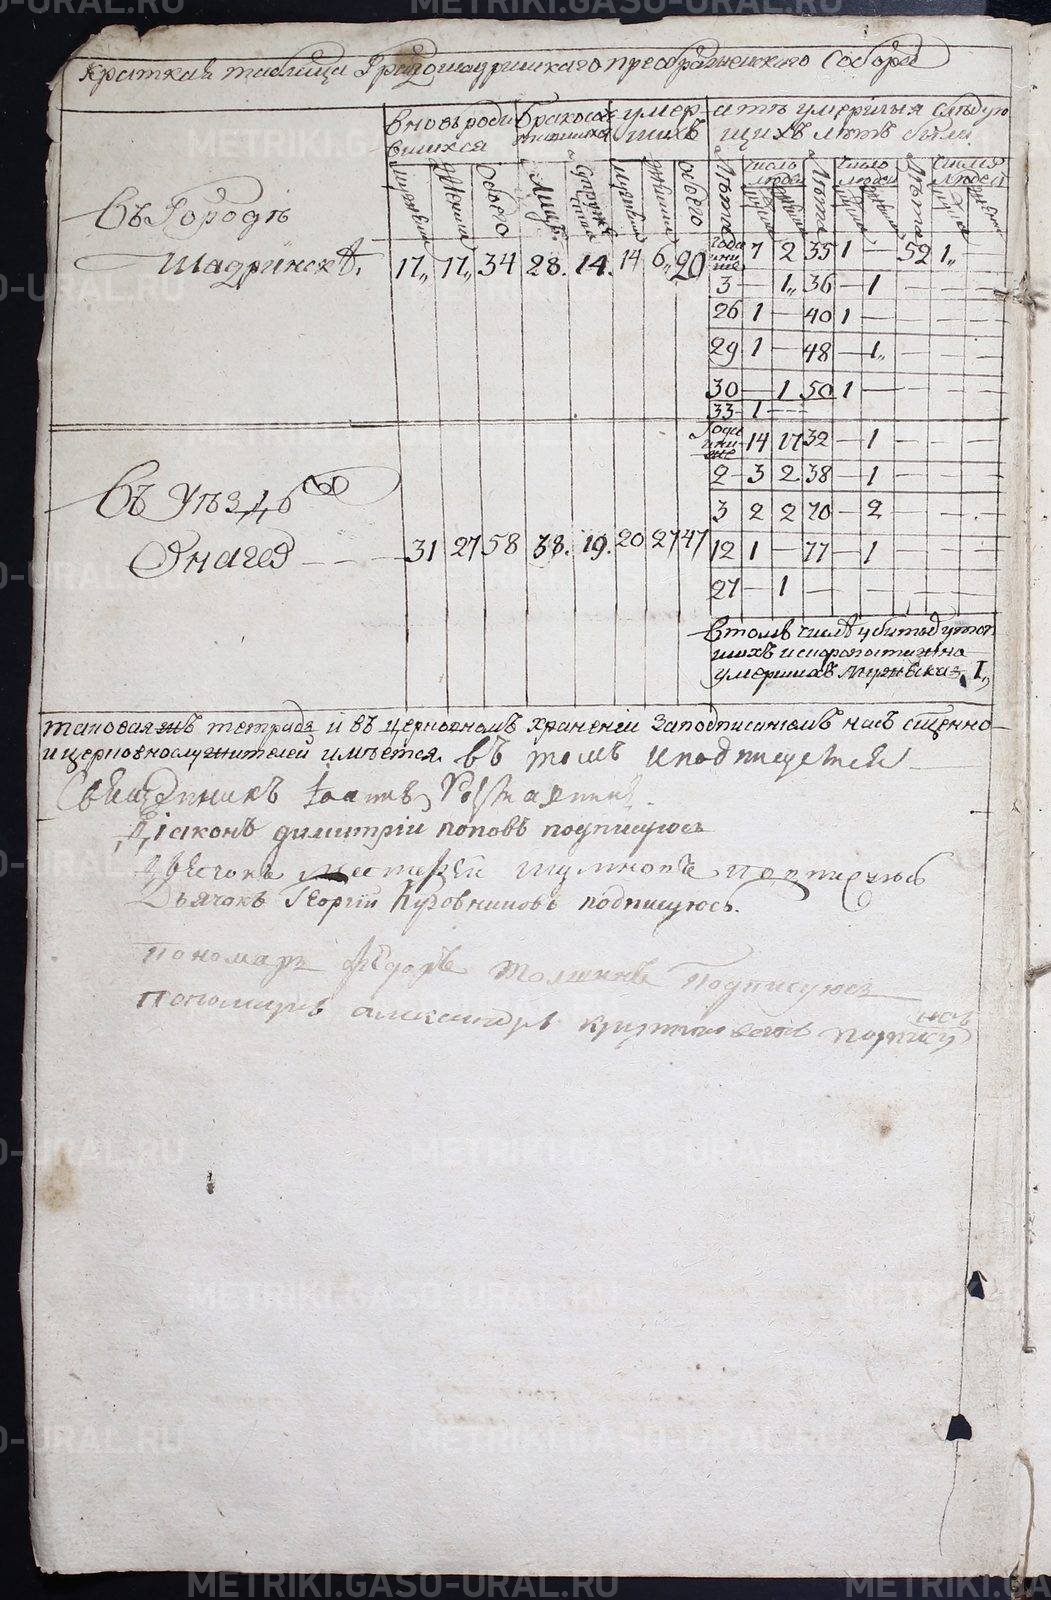 Краткая таблица Градошадринскаго преображенскаго Собора
вновь роди вшихся
бракосоч
умер шихъ
а отъ умершыя слѣдую щихъ лѣтъ были
мужеска женска обоего лицъ супружества мужеска женска обоего
лѣта число людей лѣта число людей лѣта число людей
Въ Городѣ
Шадринскѣ. 17,, 17,, 34 28. 14. 14 6,, 20
года и ниже 7 2 35 1 — 52 1,, —
3 — 1,, 36 — 1 — — —
26 1 — 40 1 — — — —
29 1 — 48 — 1,, — — —
30 — 1 50 1 — — — —
33 1 —
Въ Уѣздѣ
Онагед — — — 31 27 58 38. 19. 20 27 47
Года и ниже 14 17 32 — 1 — — —
2 3 2 38 — 1 — — —
3 2 2 70 — 2 — — —
12 1 — 77 — 1 — — —
27 — 1 — — — — — —
втомъ числѣ убитыхъ утоп
шихъ и скоропостижно
умершихъ мужеска 1,,
таковаяжъ тетрадь и въ церковномъ хранении заподписаниемъ насъ сщенно
и церковнослужителей имѣется. въ томъ и подписуемся
Священникъ Іоаннъ
Діаконъ димитріи поповъ подписуюсь
подписуюсь
Дьячокъ Георгій Кудовниковъ подписуюсь.
пономарь Федоръ подписуюсь
Пономарь александръ подпису
юсь
METRIKI.GASO-URAL.RU